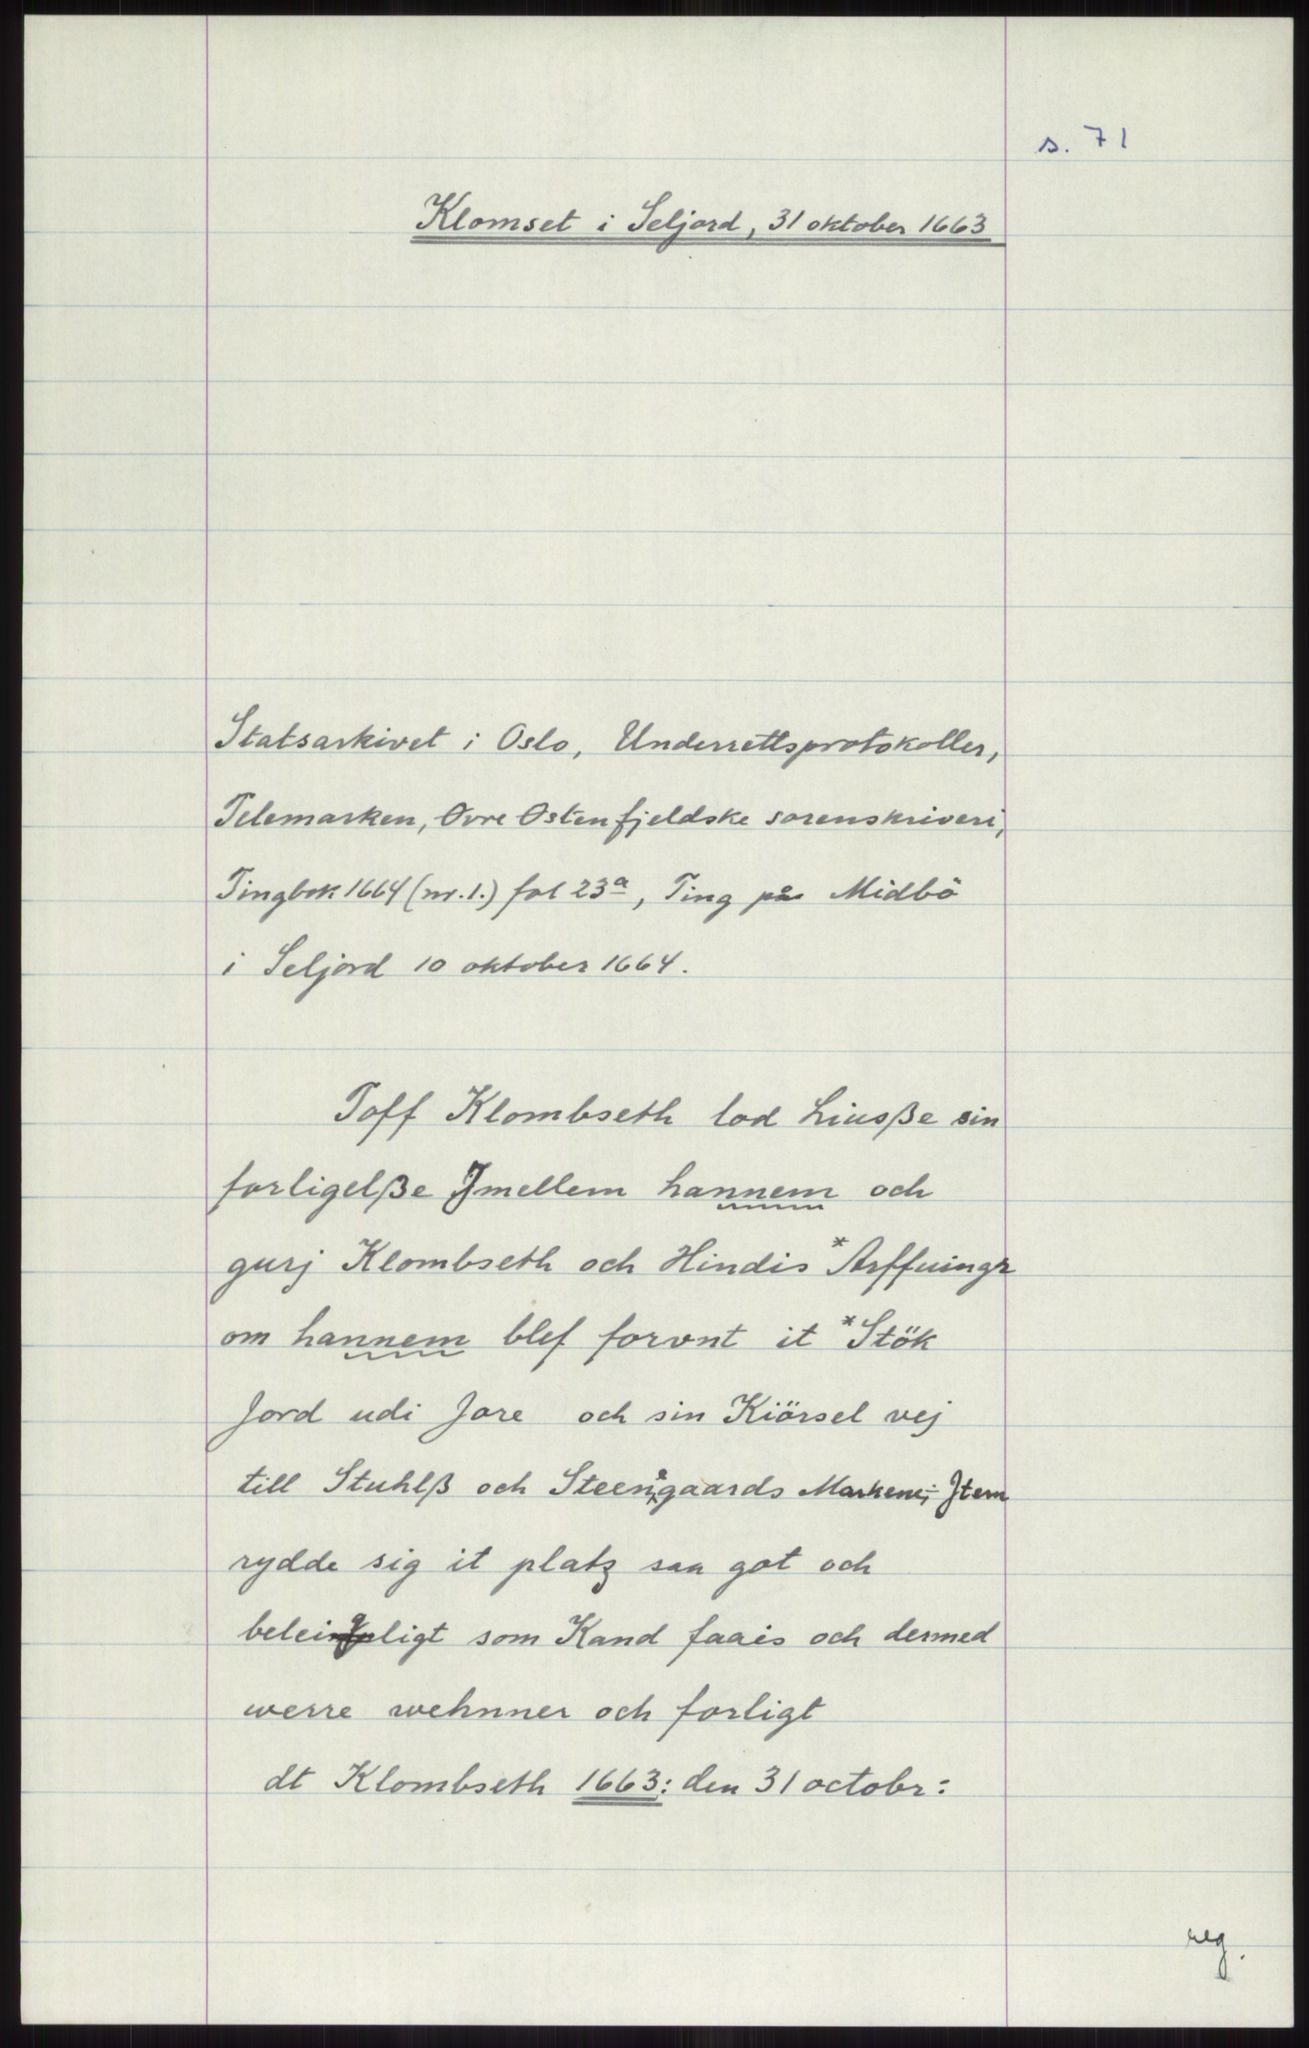 s. 71
Klomset i Seljord, 31 oktober 1663
Statsarkivet i Oslo, Underrettsprotokoller,
Telemarken, Øvre Østenfjeldske sorenskriveri,
Tingbok 1664 (nr. 1.) fol 23ª, Ting på Midbö
i Seljord 10 oktober 1664.
Toff Klombseth lod Liusße sin
forligelße Jmellem hannem och
gurj Klombseth och Hindis *Arffuingr
om hannem blef forvnt it *Stök
Jord udi Jore och sin Kiörsel vej
till Stuhlß och Steensgaards Markene; Jtem
rydde sig it platz saa got och
beleigligt som Kand faaes och dermed
werre wehnner och forligt
dt Klombseth 1663: den 31 octobr:
reg.